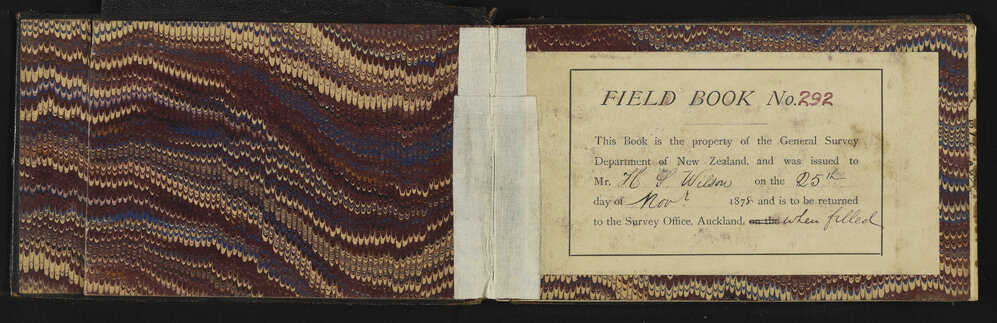 FIELD BOOK No. 292
This Book is the property of the General Survey
Department of New Zealand, and was issued to
Mr. H. S. Wilson on the 25th
day of Novr 1878 and is to be returned
to the Survey Office, Auckland, on the when filled